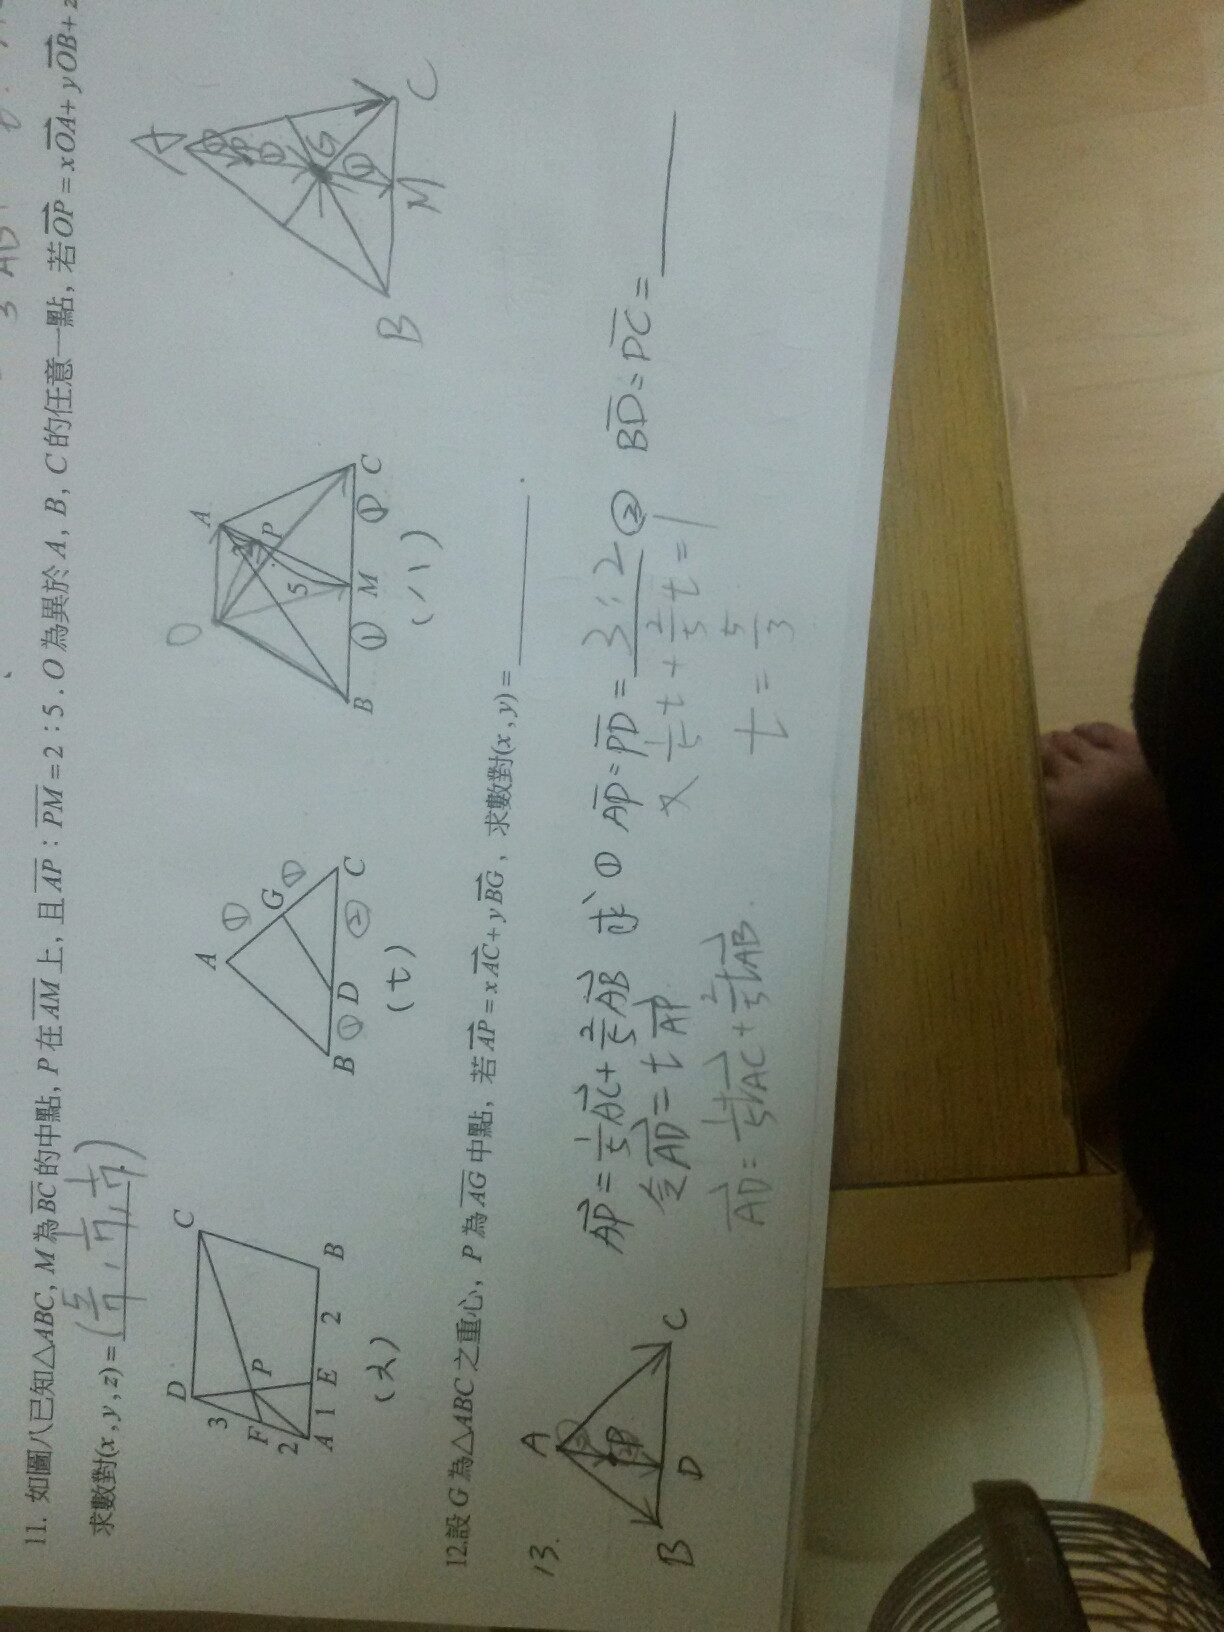 11. 如圖八已知△ABC, M為BC的中點, P在AM上, 且AP:PM=2:5. O為異於A, B, C的任意一點, 若OP=xOA+yOB+z
求數對(x,y,z)=(5/7,1/7,1/7)
D
C
3
F
P
2
A
1
E
2
B
(六)
A
①
G
①
B
①
D
②
C
(七)
O
A
P
5
B
①
M
①
C
(八)
A
P
①
G
①
B
M
C
12.設G為△ABC之重心, P為AG中點, 若AP=xAC+yBG, 求數對(x,y)=
13.
A
P
B
D
C
AP=1/5AC+2/5AB 求 ① AP:PD=3:2 ② BD:DC=
令AD=tAP
AD=1/5tAC+2/5tAB.
又1/5t+2/5t=1
t=5/3